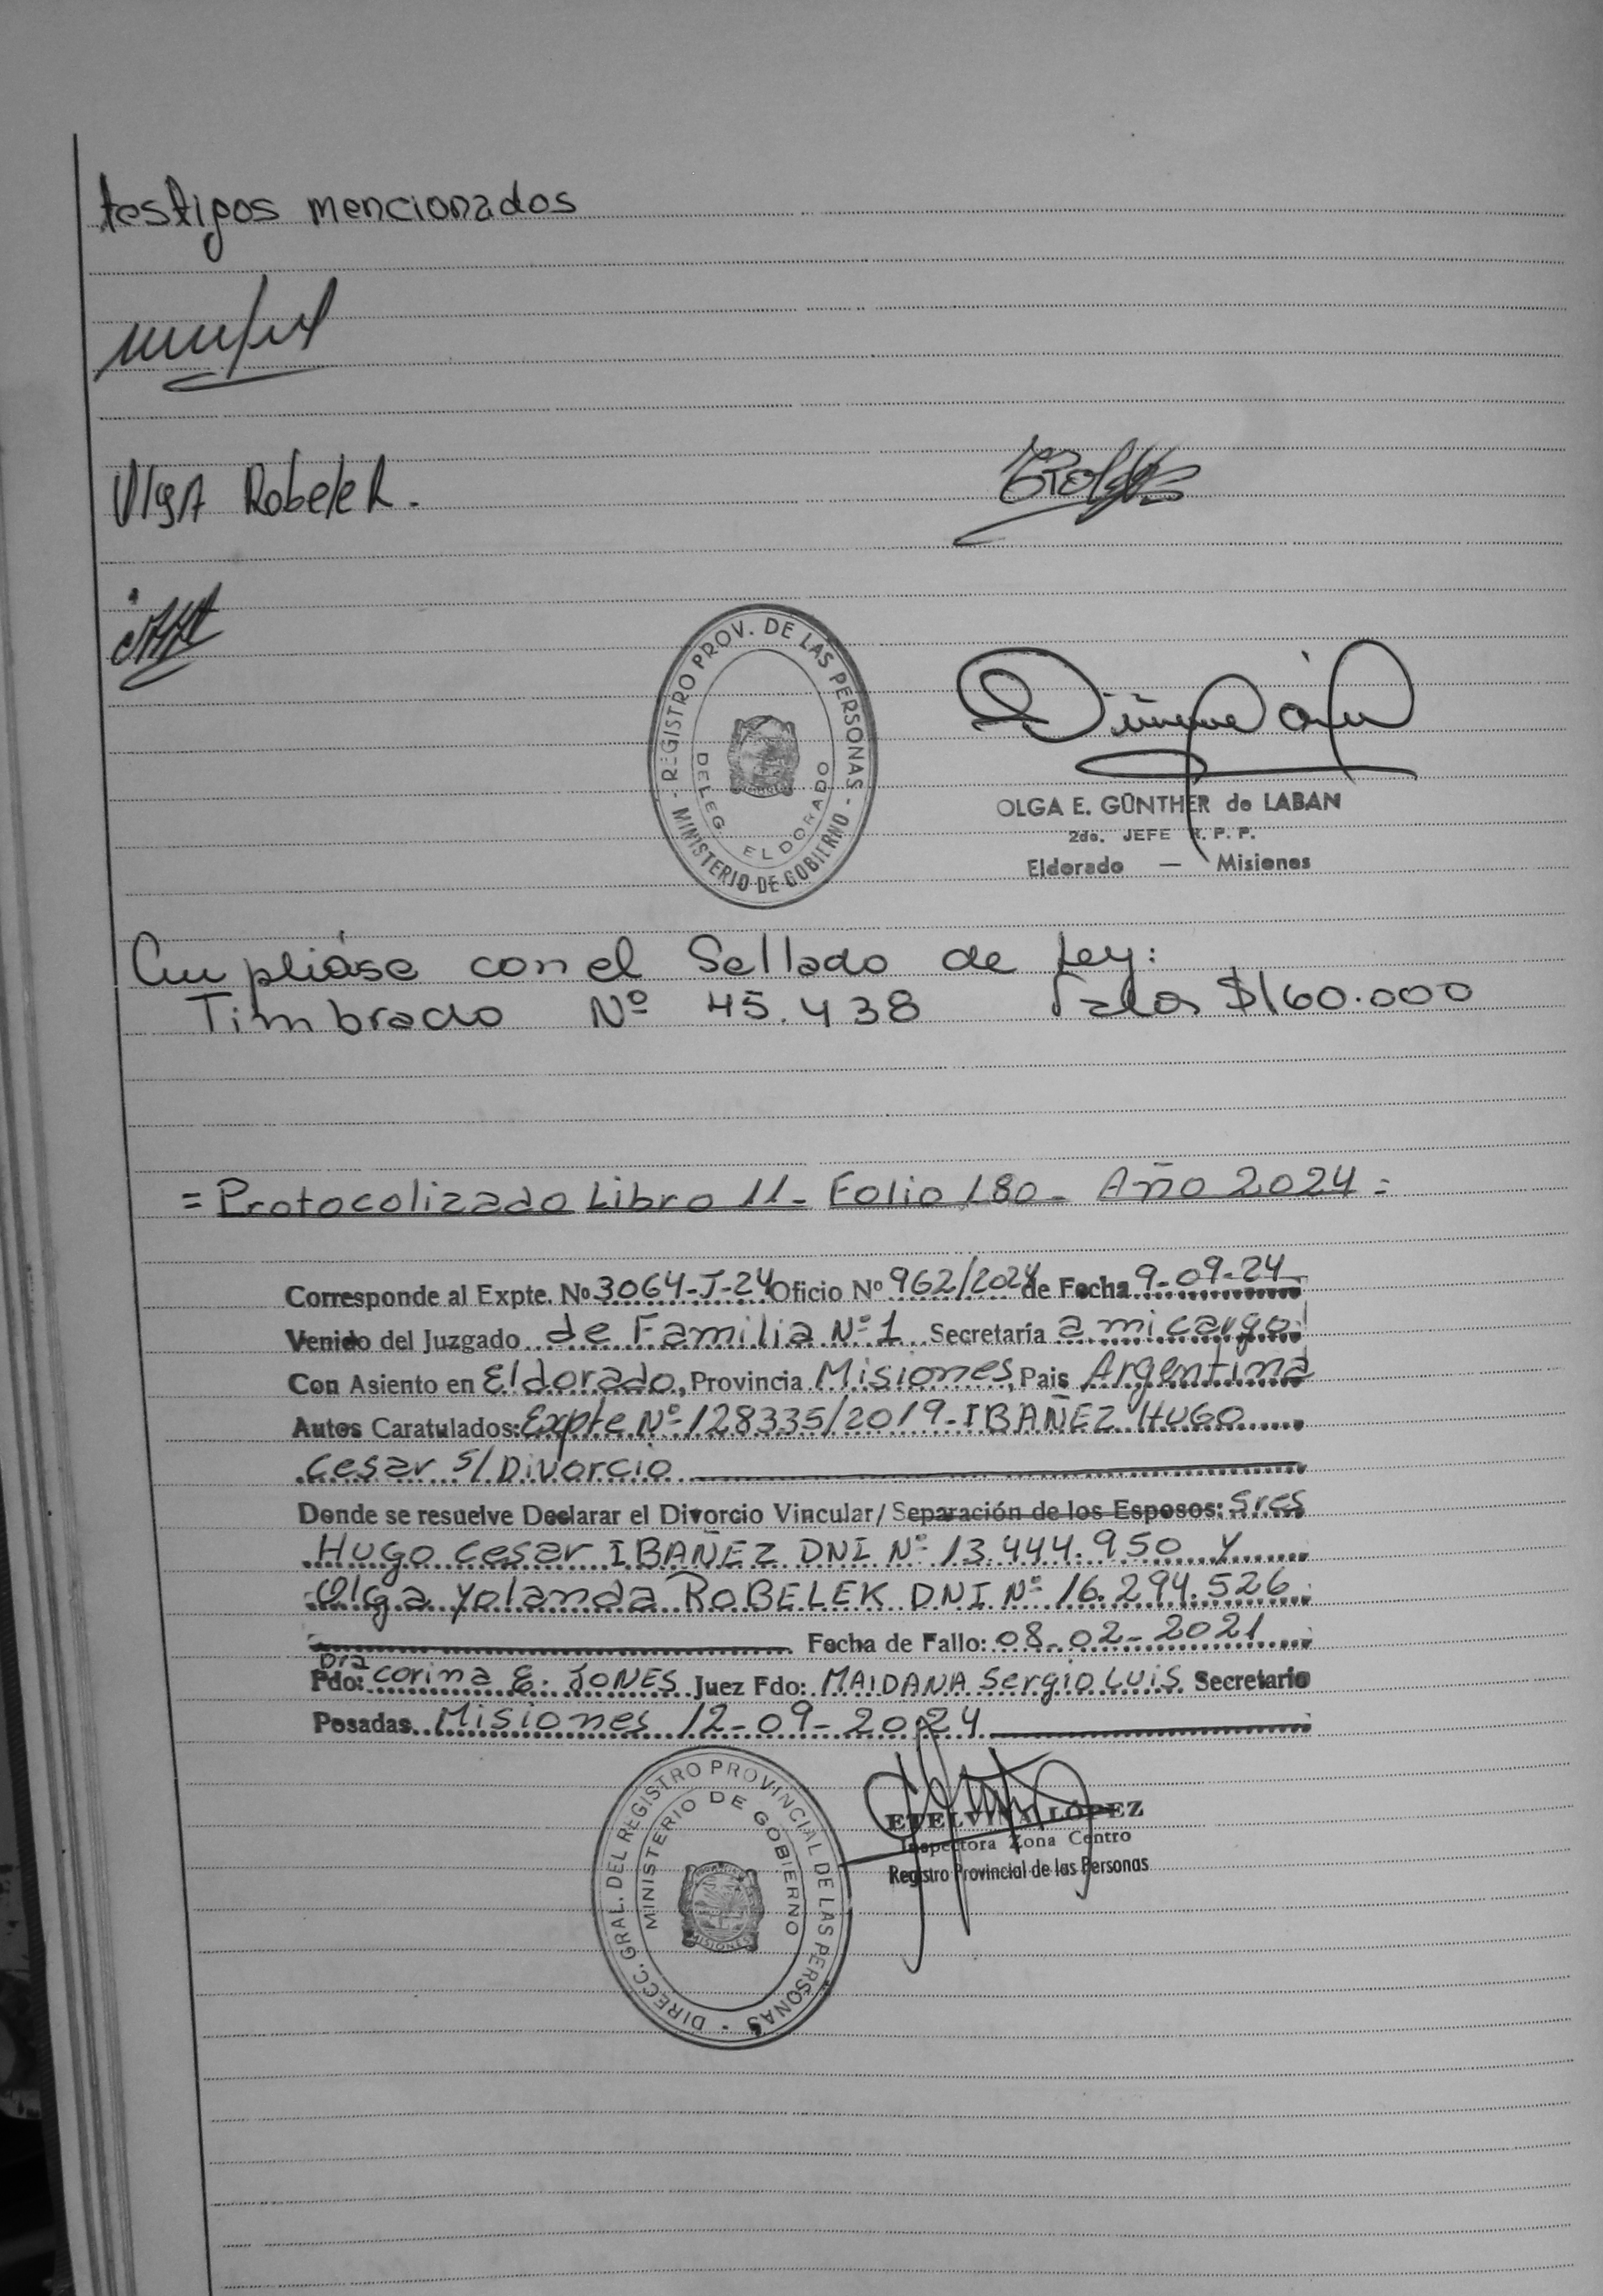 testigos mencionados
Olga Robelek.
REGISTRO PROV. DE LAS PERSONAS - MINISTERIO DE GOBIERNO -
DELEG. ELDORADO
OLGA E. GÜNTHER de LABAN
2do. JEFE R. P. P.
Eldorado — Misiones
Cumpliáse con el Sellado de Ley:
Timbrado Nº 45.438 Valor $160.000
= Protocolizado Libro 11- Folio 180- Año 2024 =
Corresponde al Expte. Nº 3064-J-24 Oficio Nº 962/2024 de Fecha 9-09-24
Venido del Juzgado de Familia Nº 1 Secretaría a mi cargo
Con Asiento en Eldorado, Provincia Misiones, Pais Argentina
Autos Caratulados: Expte Nº 128335/2019-IBAÑEZ HUGO
Cesar s/ Divorcio
Donde se resuelve Declarar el Divorcio Vincular/ Separación de los Esposos: Sres
Hugo Cesar IBAÑEZ DNI Nº 13.444.950 y
Olga Yolanda ROBELEK DNI Nº 16.294.526
Fecha de Fallo: 08-02-2021
Fdo: Dra Corina E. JONES Juez Fdo: MAIDANA Sergio Luis Secretario
Posadas Misiones 12-09-2024
DIRECC. GRAL. DEL REGISTRO PROVINCIAL DE LAS PERSONAS -
MINISTERIO DE GOBIERNO
MISIONES
ETELVINA LÓPEZ
Inspectora Zona Centro
Registro Provincial de las Personas